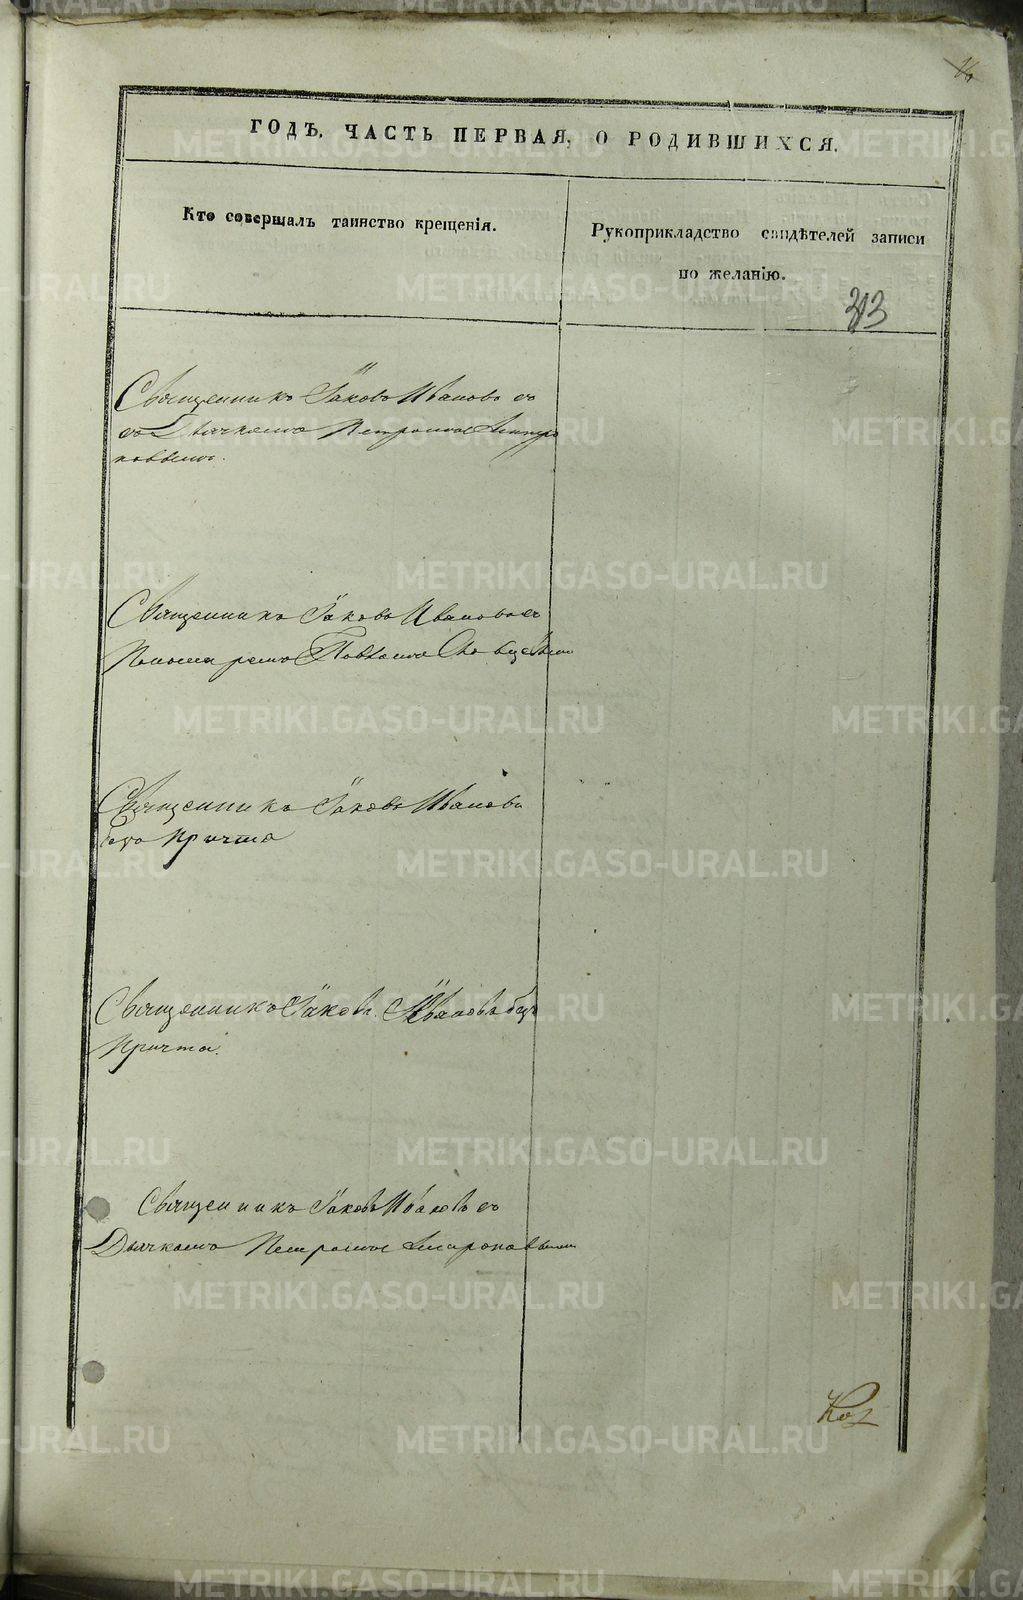 ГОДЪ, ЧАСТЬ ПЕРВАЯ, О РОДИВШИХСЯ.
Кто совершалъ таинство крещенія.
Рукоприкладство свидѣтелей записи
по желанію.
313
Священникъ Іаковъ Ивановъ съ
съ Дьячкомъ Петромъ
Священникъ Іаковъ Ивановъ съ
Пономаремъ Павломъ
Священникъ Іаковъ Ивановъ
безъ Причта
Священникъ Іаковъ Ивановъ безъ
Причта.
Священникъ Іаковъ Ивановъ съ
Дьячкомъ Петромъ
METRIKI.GASO-URAL.RU